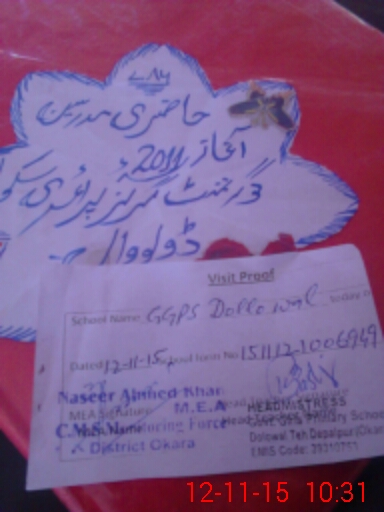 ۷۸۶
حاضری مدرسین
آغاز 2011ء
گورنمنٹ گرلز پرائمری سکو
ڈولووال
Visit Proof
School Name GGPS Dollowal today o
Dated 12-11-15 School form No 151112-1006949
Naseer Ahmed Khan
MEA Signature M.E.A Head
HEADMISTRESS
C.M. Monitoring Force
Govt Girls Primary School
District Okara
Dolowal Teh Depalpur (Okara
EMIS Code:
12-11-15 10:31